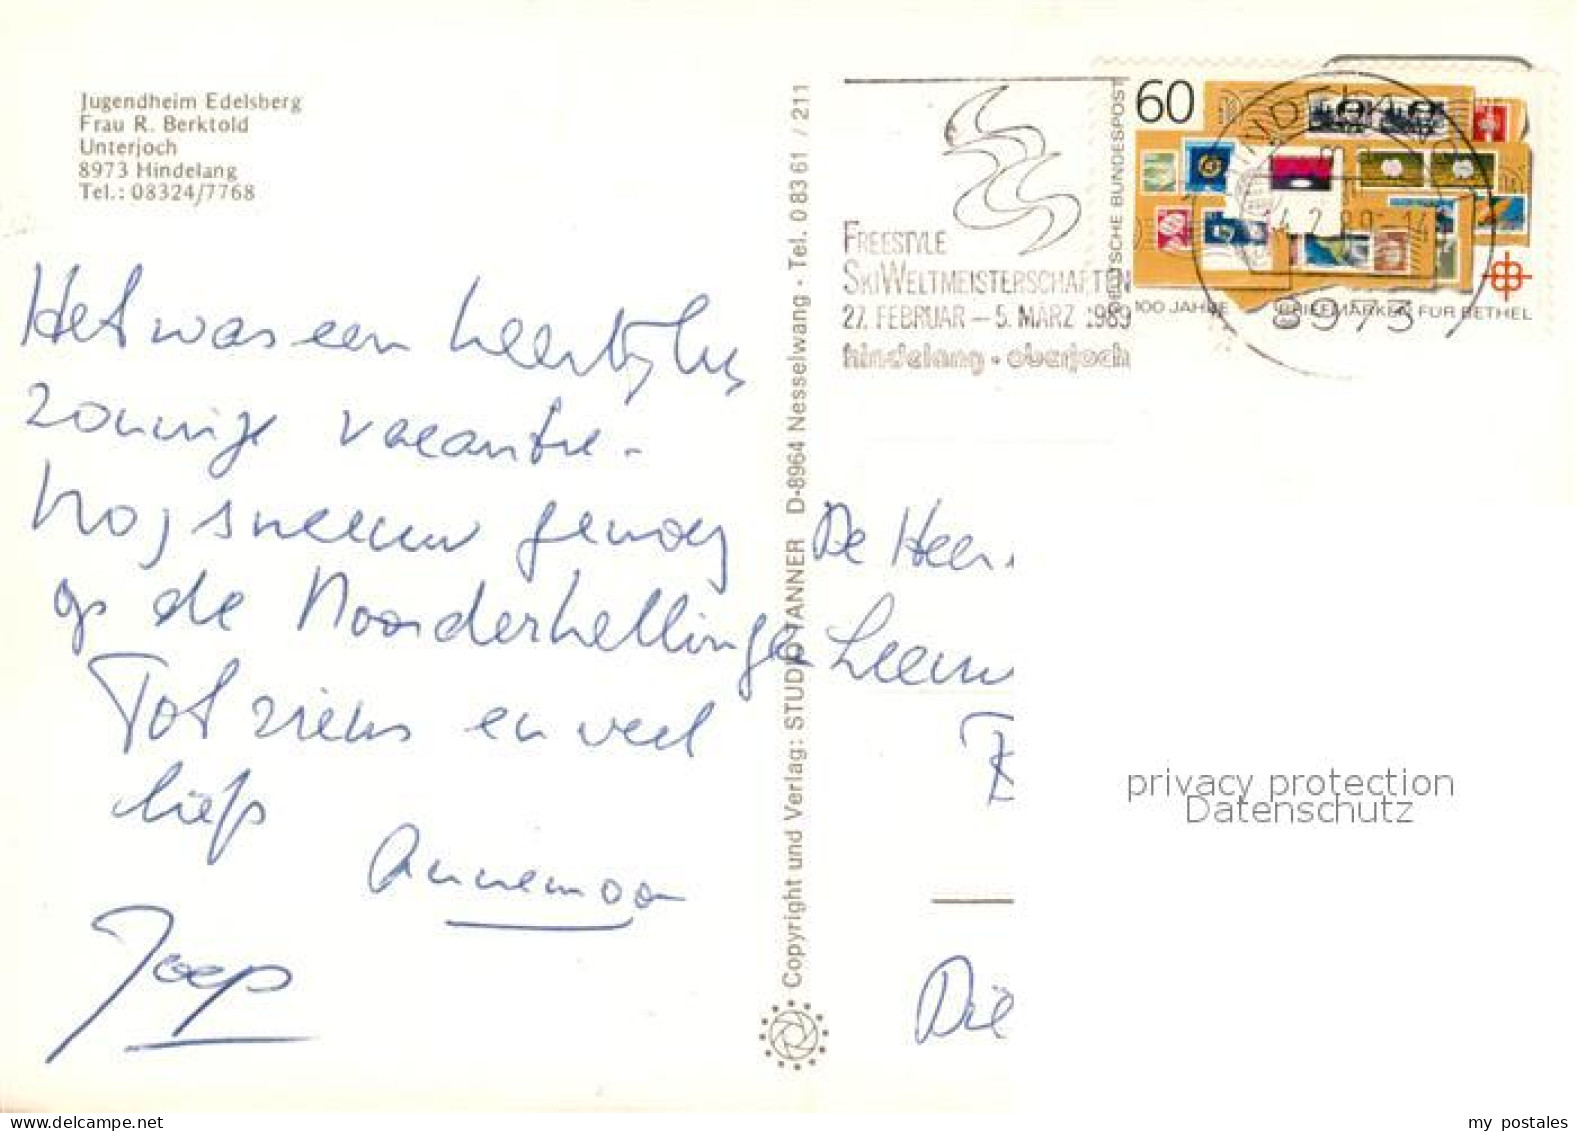 Jugendheim Edelsberg
Frau R. Berktold
Unterjoch
8973 Hindelang
Tel.: 08324/7768
Het was een heerlijke
zonnige vacantie -
Nog sneeuw genoeg
op de Noorderhellingen
Tot ziens en veel
liefs
Annemoon
Joep
Copyright und Verlag: STUDIO TANNER D-8964 Nesselwang · Tel. 0 83 61 / 211
FREESTYLE
SKIWELTMEISTERSCHAFTEN
27. FEBRUAR – 5. MÄRZ 1989
hindelang · oberjoch
60
DEUTSCHE BUNDESPOST
100 JAHRE BRIEFMARKEN FÜR BETHEL
HINDELANG
8973
De Heer
Leeuw
Die
privacy protection
Datenschutz
my postales